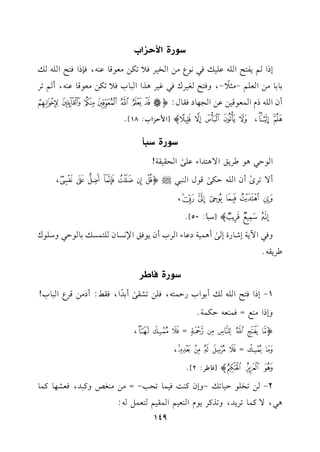 سورة الأحزاب
إذا لم يفتح الله عليك في نوع من الخير فلا تكن معوقا عنه، فإذا فتح الله لك
بابا من العلم -مثلًا-، وفتح لغيرك في غير هذا الباب فلا تكن معوقا عنه، ألم تر
أن الله ذم المعوقين عن الجهاد فقال: ﴿۞ قَدۡ يَعۡلَمُ ٱللَّهُ ٱلۡمُعَوِّقِينَ مِنكُمۡ وَٱلۡقَآئِلِينَ لِإِخۡوَٰنِهِمۡ
هَلُمَّ إِلَيۡنَاۖ وَلَا يَأۡتُونَ ٱلۡبَأۡسَ إِلَّا قَلِيلًا﴾ [الأحزاب: ١٨].
سورة سبأ
الوحي هو طريق الاهتداء على الحقيقة!
ألا ترىٰ أن الله حكىٰ قول النبي ﷺ ﴿قُلۡ إِن ضَلَلۡتُ فَإِنَّمَآ أَضِلُّ عَلَىٰ نَفۡسِيۖ
وَإِنِ ٱهۡتَدَيۡتُ فَبِمَا يُوحِيٓ إِلَيَّ رَبِّيٓۚ
إِنَّهُۥ سَمِيعٌ قَرِيبٌ﴾ [سبأ: ٥٠].
وفي الآية إشارة إلىٰ أهمية دعاء الرب أن يوفق الإنسان للتمسك بالوحي وسلوك
طريقه.
سورة فاطر
١- إذا فتح الله لك أبواب رحمته، فلن تشقىٰ أبدًا، فقط: أدمن قرع الباب!
وإذا منع = فمنعه حكمة.
﴿مَّا يَفۡتَحِ ٱللَّهُ لِلنَّاسِ مِن رَّحۡمَةٖ = فَلَا مُمۡسِكَ لَهَاۖ
وَمَا يُمۡسِكۡ = فَلَا مُرۡسِلَ لَهُۥ مِنۢ بَعۡدِهِۦۚ
وَهُوَ ٱلۡعَزِيزُ ٱلۡحَكِيمُ﴾ [فاطر: ٢].
٢- لن تخلو حياتك -وإن كنت فيما تحب- = من منغص وكبد، فعشها كما
هي، لا كما تريد، وتذكر يوم النعيم المقيم لتعمل له:
١٤٩